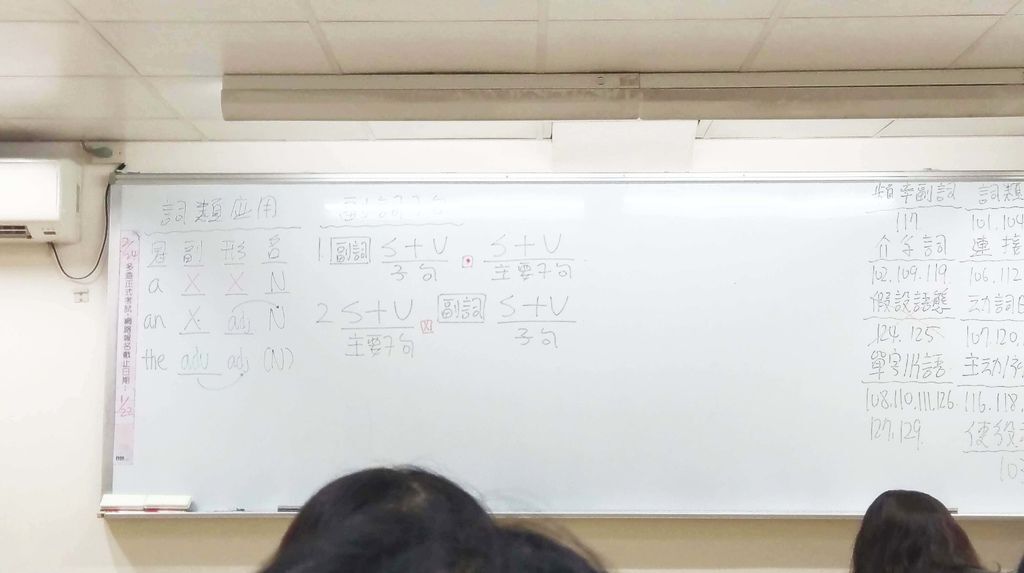 詞類应用
冠 副 形 名
a X X N
an X adj N
the adv adj (N)
副詞子句
1. 副詞 S+V , S+V
子句 主要子句
2 S+V X 副詞 S+V
主要子句 子句
頻率副詞
117
介系詞
102.109.119
假設語態
124.125
單字/片語
108.110.111.126
127.129
詞類
101.104
連接
106.112
动詞
107.120.
主动/
116.118.
使役
10
2/24 多益正式考試,網路報名截止日期: 1/22